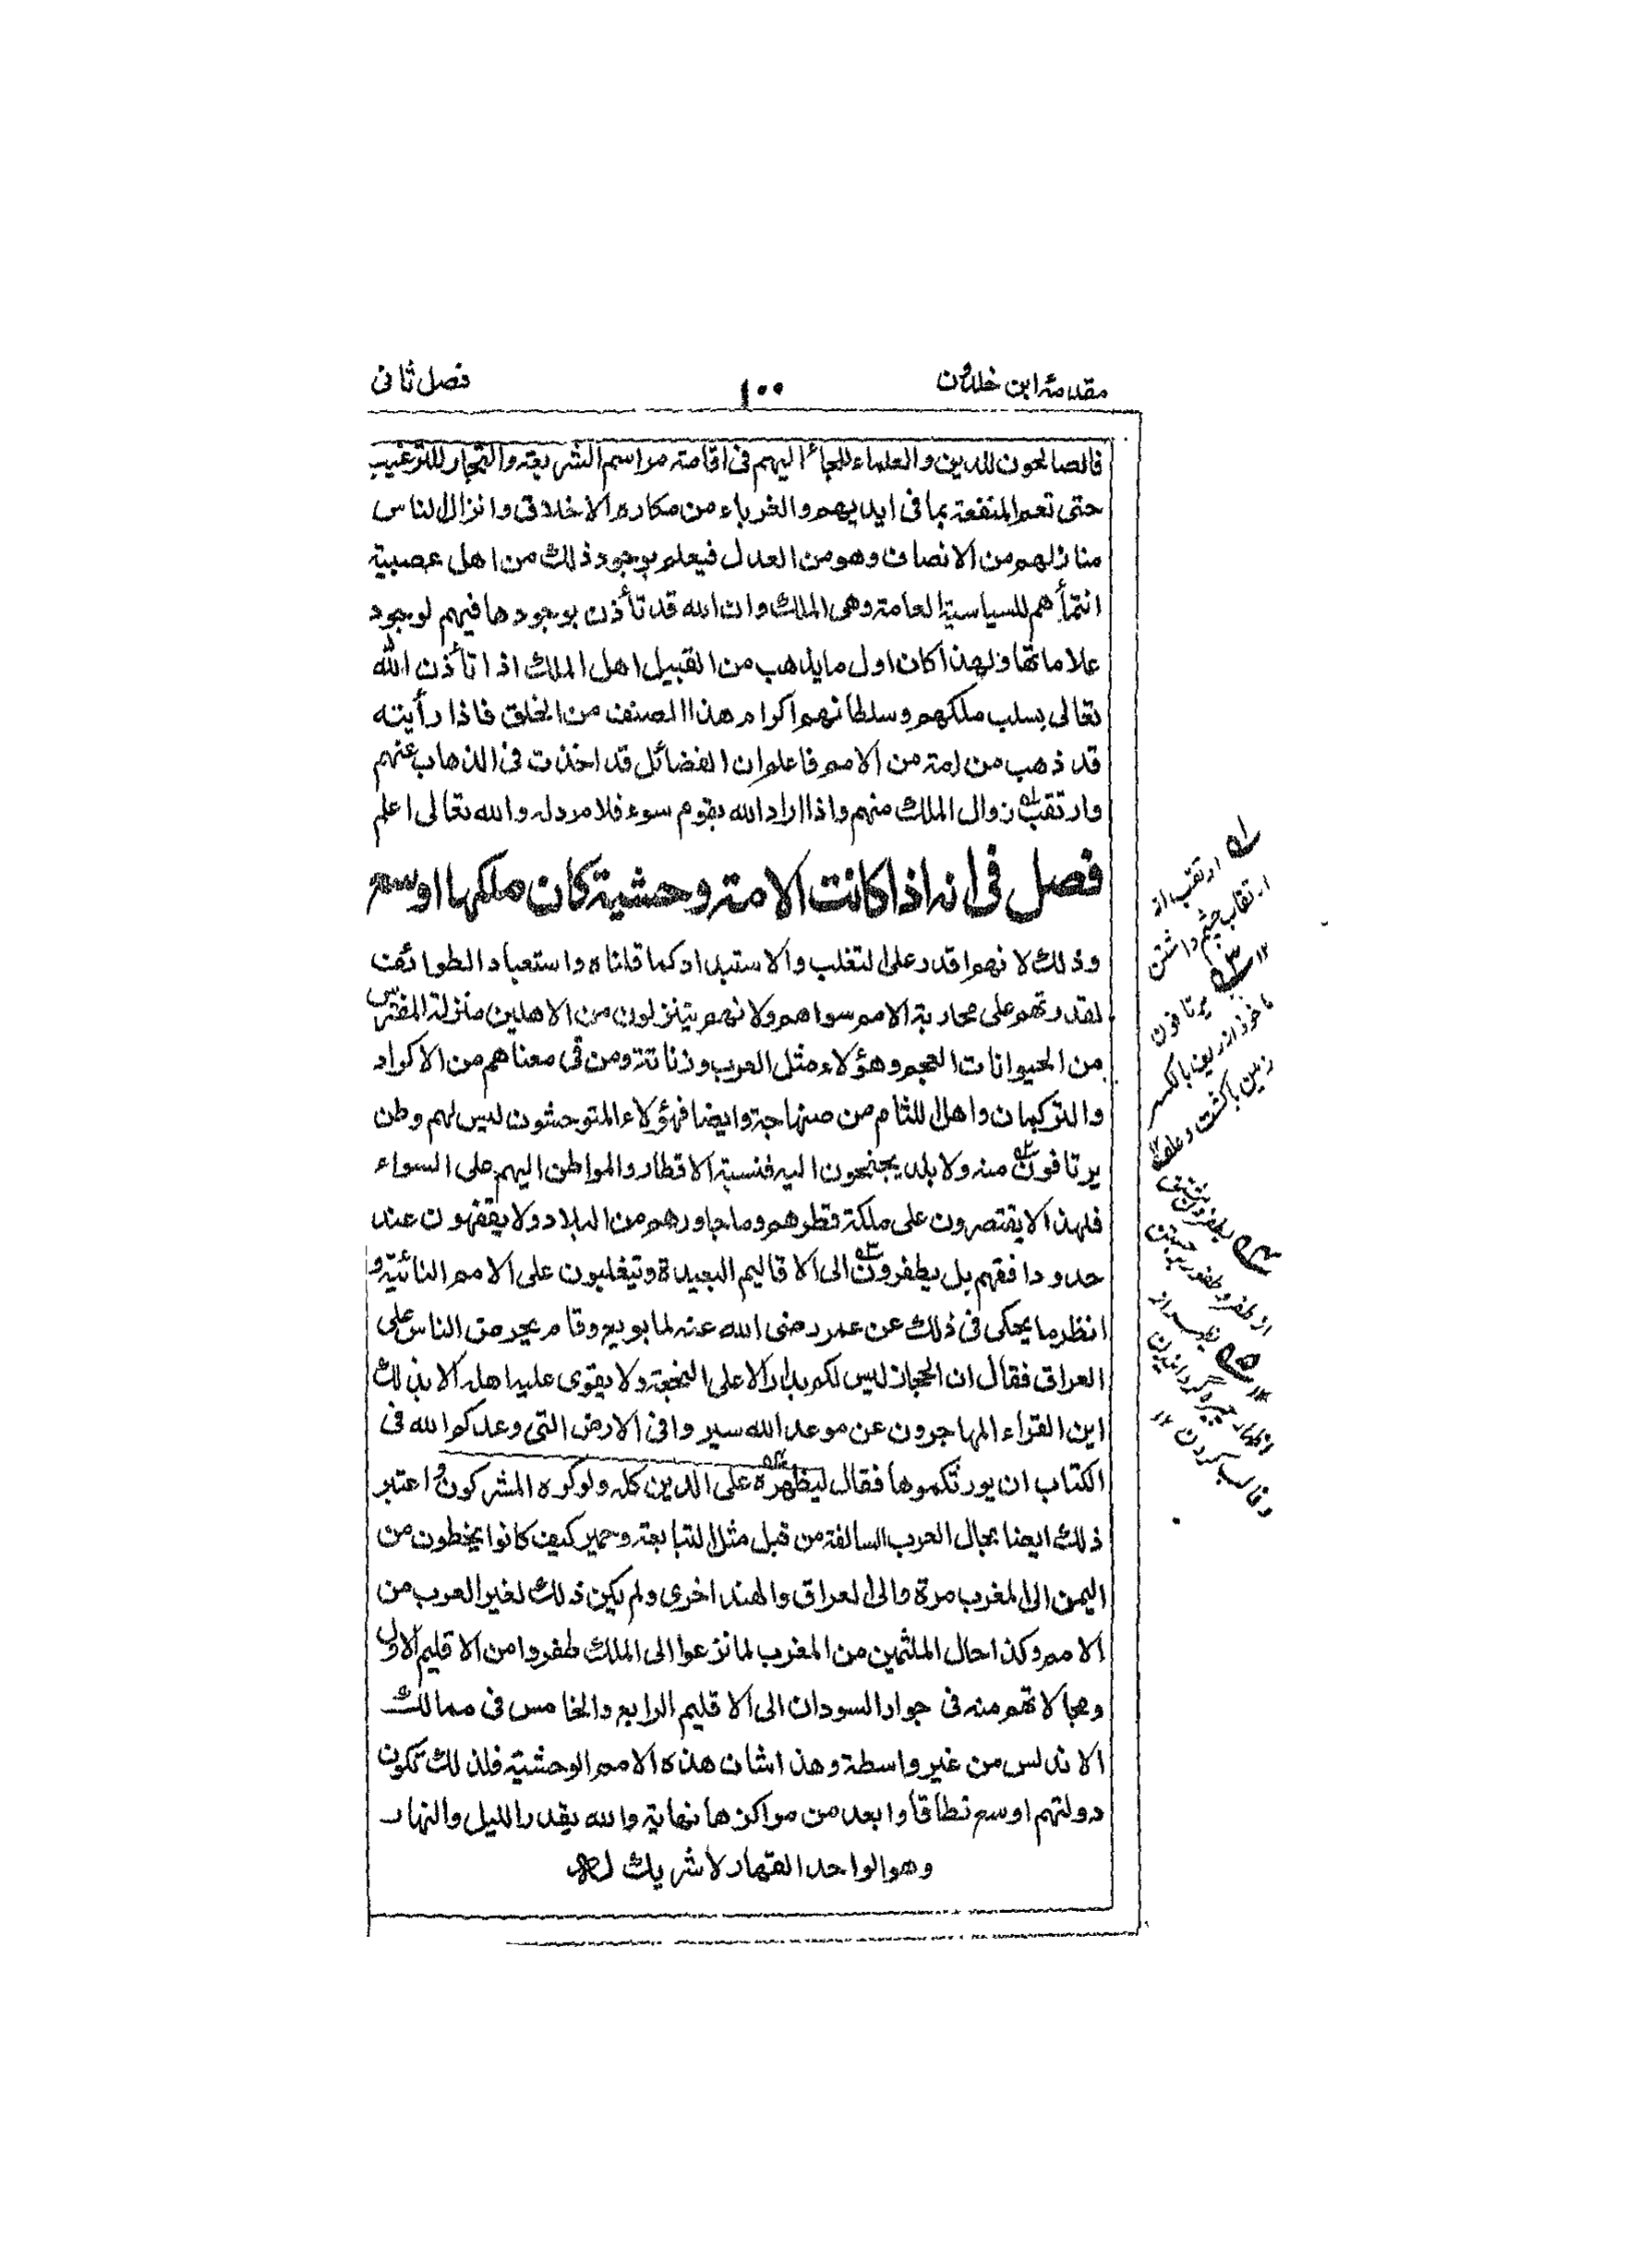 مقدمۂ ابن خلدون
١٠٠
فصل ثانی
فالصالحون للدین والعلماء للجاٴ الیهم فی اقامة مراسم الشریعة والتجار للترغیب
حتی تعم المنفعة بما فی ایدیهم والغرباء من مکارم الاخلاق وانزال الناس
منازلهم من الانصاف وهو من العدل فیعلم بوجود ذلك من اهل عصبیة
انتمأهم للسیاسیة العامة وهی الملك وان الله قد تأذن بوجودها فیهم لوجود
علاماتها ولهذا کان اول ما یذهب من القبیل اهل الملك اذا تأذن الله
تعالی بسلب ملکهم وسلطانهم اکرام هذا الصنف من الخلق فاذا رأیته
قد ذهب من امة من الامم فاعلم ان الفضائل قد اخذت فی الذهاب عنهم
وارتقب زوال الملك منهم واذا اراد الله بقوم سوء فلا مرد له والله تعالی اعلم
فصل فی انه اذا کانت الامة وحشیة کان ملکها اوسع
وذلك لانهم اقدر علی التغلب والاستبداد کما قلناه واستعباد الطوائف
لقدرتهم علی محاربة الامم سواهم ولانهم یتنزلون من الاهلین منزلة المفترس
من الحیوانات العجم وهؤلاء مثل العرب وزناتة ومن فی معناهم من الاکراد
والترکمان واهل اللثام من صنهاجة وایضا فهؤلاء المتوحشون لیس لهم وطن
یرتافون منه ولا بلد یجنحون الیه فنسبة الاقطار والمواطن الیهم علی السواء
فلهذا لا یقتصرون علی ملکة قطرهم وما جاورهم من البلاد ولا یقفهون عند
حدود افقهم بل یطفرون الی الاقالیم البعیدة ویتغلبون علی الامم النائیة و
انظر ما یحکی فی ذلك عن عمر رضی الله عنه لما بویع وقام یحرض الناس علی
العراق فقال ان الحجاز لیس لکم بدار الا علی النجعة ولا یقوی علیه اهله الا بذلك
این القراء المهاجرون عن موعد الله سیروا فی الارض التی وعدکم الله فی
الکتاب ان یورثکموها فقال لیظهره علی الدین کله ولو کره المشرکون و اعتبر
ذلك ایضا بحال العرب السالفة من قبل مثل التبابعة وحمیر کیف کانوا یخطون من
الیمن الی المغرب مرة والی العراق والهند اخری ولم یکن ذلك لغیر العرب من
الامم وکذا حال الملثمین من المغرب لما نزعوا الی الملك طفروا من الاقلیم الاول
ومجالاتهم منه فی جوار السودان الی الاقلیم الرابع والخامس فی ممالك
الاندلس من غیر واسطة وهذا شان هذه الامم الوحشیة فلذلك تکون
دولتهم اوسع نطاقا وابعد من مراکزها نهایة والله یقدر اللیل والنهار
وهو الواحد القهار لا شریك له
ارتقب از
ارتقاب چشم داشتن
۱۲
یرتافون
ماخوذ از ریف بالکسر
زمین باکشت وعلف
یطفرون
از طفر وطفور
وغالب کردن ۱۲